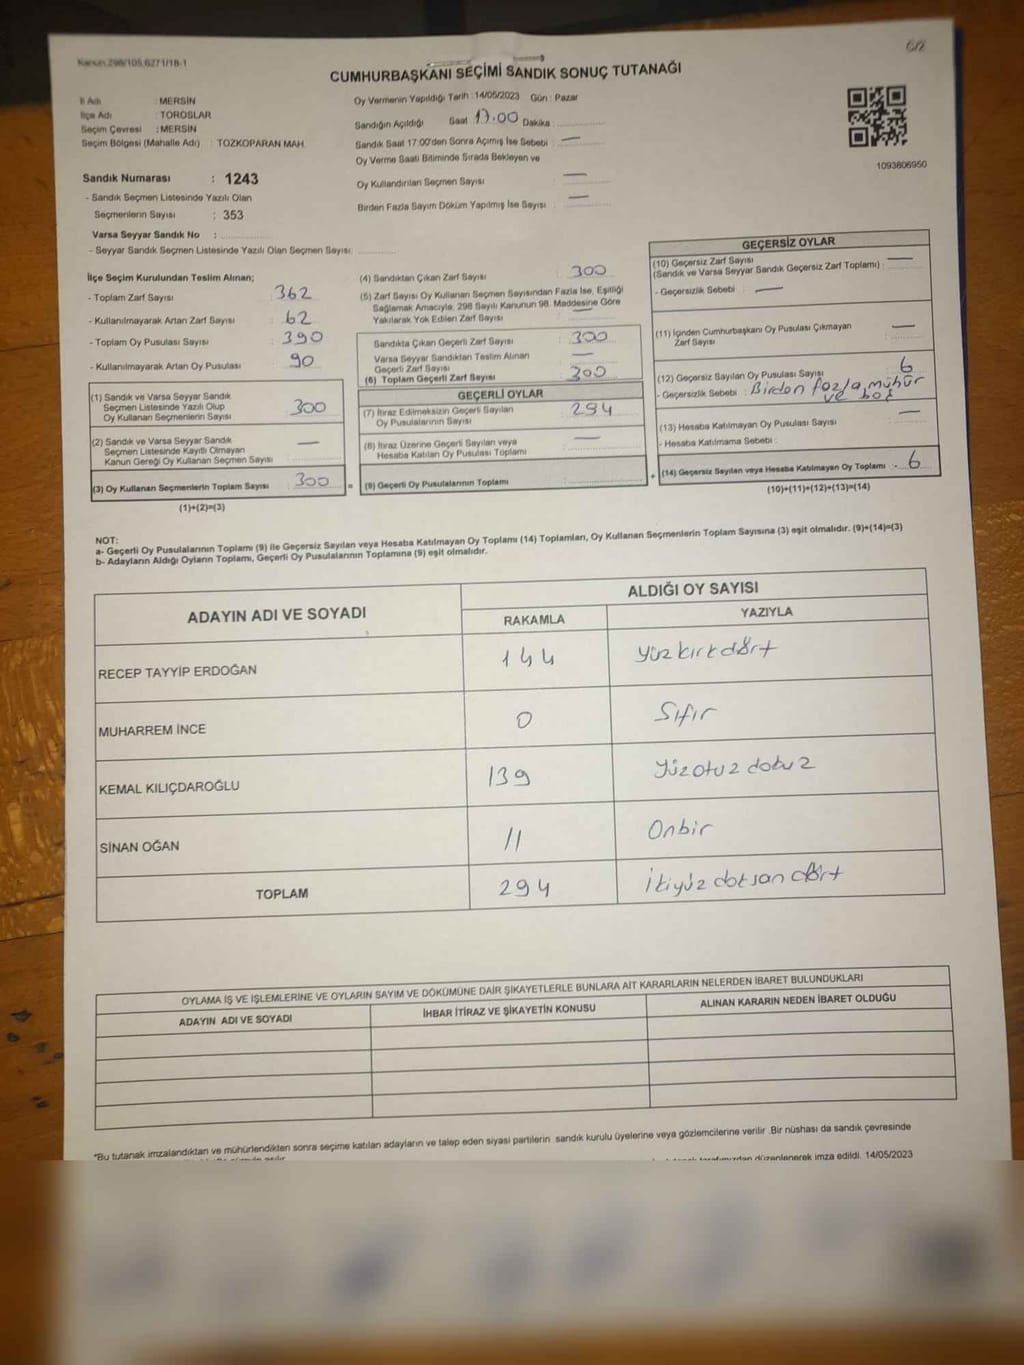 Kanun 298/105,6271/18-1
6/2
CUMHURBAŞKANI SEÇİMİ SANDIK SONUÇ TUTANAĞI
İl Adı : MERSİN
İlçe Adı : TOROSLAR
Seçim Çevresi : MERSİN
Seçim Bölgesi (Mahalle Adı) : TOZKOPARAN MAH.
Sandık Numarası : 1243
- Sandık Seçmen Listesinde Yazılı Olan
Seçmenlerin Sayısı : 353
Varsa Seyyar Sandık No :
- Seyyar Sandık Seçmen Listesinde Yazılı Olan Seçmen Sayısı:
Oy Vermenin Yapıldığı Tarih : 14/05/2023 Gün : Pazar
Sandığın Açıldığı Saat 17.00 Dakika :
Sandık Saat 17:00'den Sonra Açımış İse Sebebi : —
Oy Verme Saati Bitiminde Sırada Bekleyen ve
Oy Kullandırılan Seçmen Sayısı : —
Birden Fazla Sayım Döküm Yapılmış İse Sayısı : —
1093806950
İlçe Seçim Kurulundan Teslim Alınan;
- Toplam Zarf Sayısı : 362
- Kullanılmayarak Artan Zarf Sayısı : 62
- Toplam Oy Pusulası Sayısı : 390
- Kullanılmayarak Artan Oy Pusulası : 90
(1) Sandık ve Varsa Seyyar Sandık
Seçmen Listesinde Yazılı Olup
Oy Kullanan Seçmenlerin Sayısı : 300
(2) Sandık ve Varsa Seyyar Sandık
Seçmen Listesinde Kayıtlı Olmayan
Kanun Gereği Oy Kullanan Seçmen Sayısı : —
(3) Oy Kullanan Seçmenlerin Toplam Sayısı : 300 =
(1)+(2)=(3)
(4) Sandıktan Çıkan Zarf Sayısı : 300
(5) Zarf Sayısı Oy Kullanan Seçmen Sayısından Fazla İse, Eşitliği
Sağlamak Amacıyla; 298 Sayılı Kanunun 98. Maddesine Göre
Yakılarak Yok Edilen Zarf Sayısı : —
Sandıkta Çıkan Geçerli Zarf Sayısı : 300
Varsa Seyyar Sandıktan Teslim Alınan
Geçerli Zarf Sayısı : —
(6) Toplam Geçerli Zarf Sayısı : 300
GEÇERLİ OYLAR
(7) İtiraz Edilmeksizin Geçerli Sayılan
Oy Pusulalarının Sayısı : 294
(8) İtiraz Üzerine Geçerli Sayılan veya
Hesaba Katılan Oy Pusulası Toplamı : —
(9) Geçerli Oy Pusulalarının Toplamı : +
GEÇERSİZ OYLAR
(10) Geçersiz Zarf Sayısı
(Sandık ve Varsa Seyyar Sandık Geçersiz Zarf Toplamı) : —
- Geçersizlik Sebebi : —
(11) İçinden Cumhurbaşkanı Oy Pusulası Çıkmayan
Zarf Sayısı : —
(12) Geçersiz Sayılan Oy Pusulası Sayısı : 6
- Geçersizlik Sebebi : Birden fazla mühür
ve boş
(13) Hesaba Katılmayan Oy Pusulası Sayısı : —
- Hesaba Katılmama Sebebi :
(14) Geçersiz Sayılan veya Hesaba Katılmayan Oy Toplamı : 6
(10)+(11)+(12)+(13)=(14)
NOT:
a- Geçerli Oy Pusulalarının Toplamı (9) ile Geçersiz Sayılan veya Hesaba Katılmayan Oy Toplamı (14) Toplamları, Oy Kullanan Seçmenlerin Toplam Sayısına (3) eşit olmalıdır. (9)+(14)=(3)
b- Adayların Aldığı Oyların Toplamı, Geçerli Oy Pusulalarının Toplamına (9) eşit olmalıdır.
ADAYIN ADI VE SOYADI
ALDIĞI OY SAYISI
RAKAMLA YAZIYLA
RECEP TAYYİP ERDOĞAN 144 yüzkırkdört
MUHARREM İNCE 0 Sıfır
KEMAL KILIÇDAROĞLU 139 yüzotuzdokuz
SİNAN OĞAN 11 Onbir
TOPLAM 294 ikiyüzdoksandört
OYLAMA İŞ VE İŞLEMLERİNE VE OYLARIN SAYIM VE DÖKÜMÜNE DAİR ŞİKAYETLERLE BUNLARA AİT KARARLARIN NELERDEN İBARET BULUNDUKLARI
ADAYIN ADI VE SOYADI İHBAR İTİRAZ VE ŞİKAYETİN KONUSU ALINAN KARARIN NEDEN İBARET OLDUĞU
*Bu tutanak imzalandıktan ve mühürlendikten sonra seçime katılan adayların ve talep eden siyasi partilerin sandık kurulu üyelerine veya gözlemcilerine verilir .Bir nüshası da sandık çevresinde
düzenlenerek imza edildi. 14/05/2023